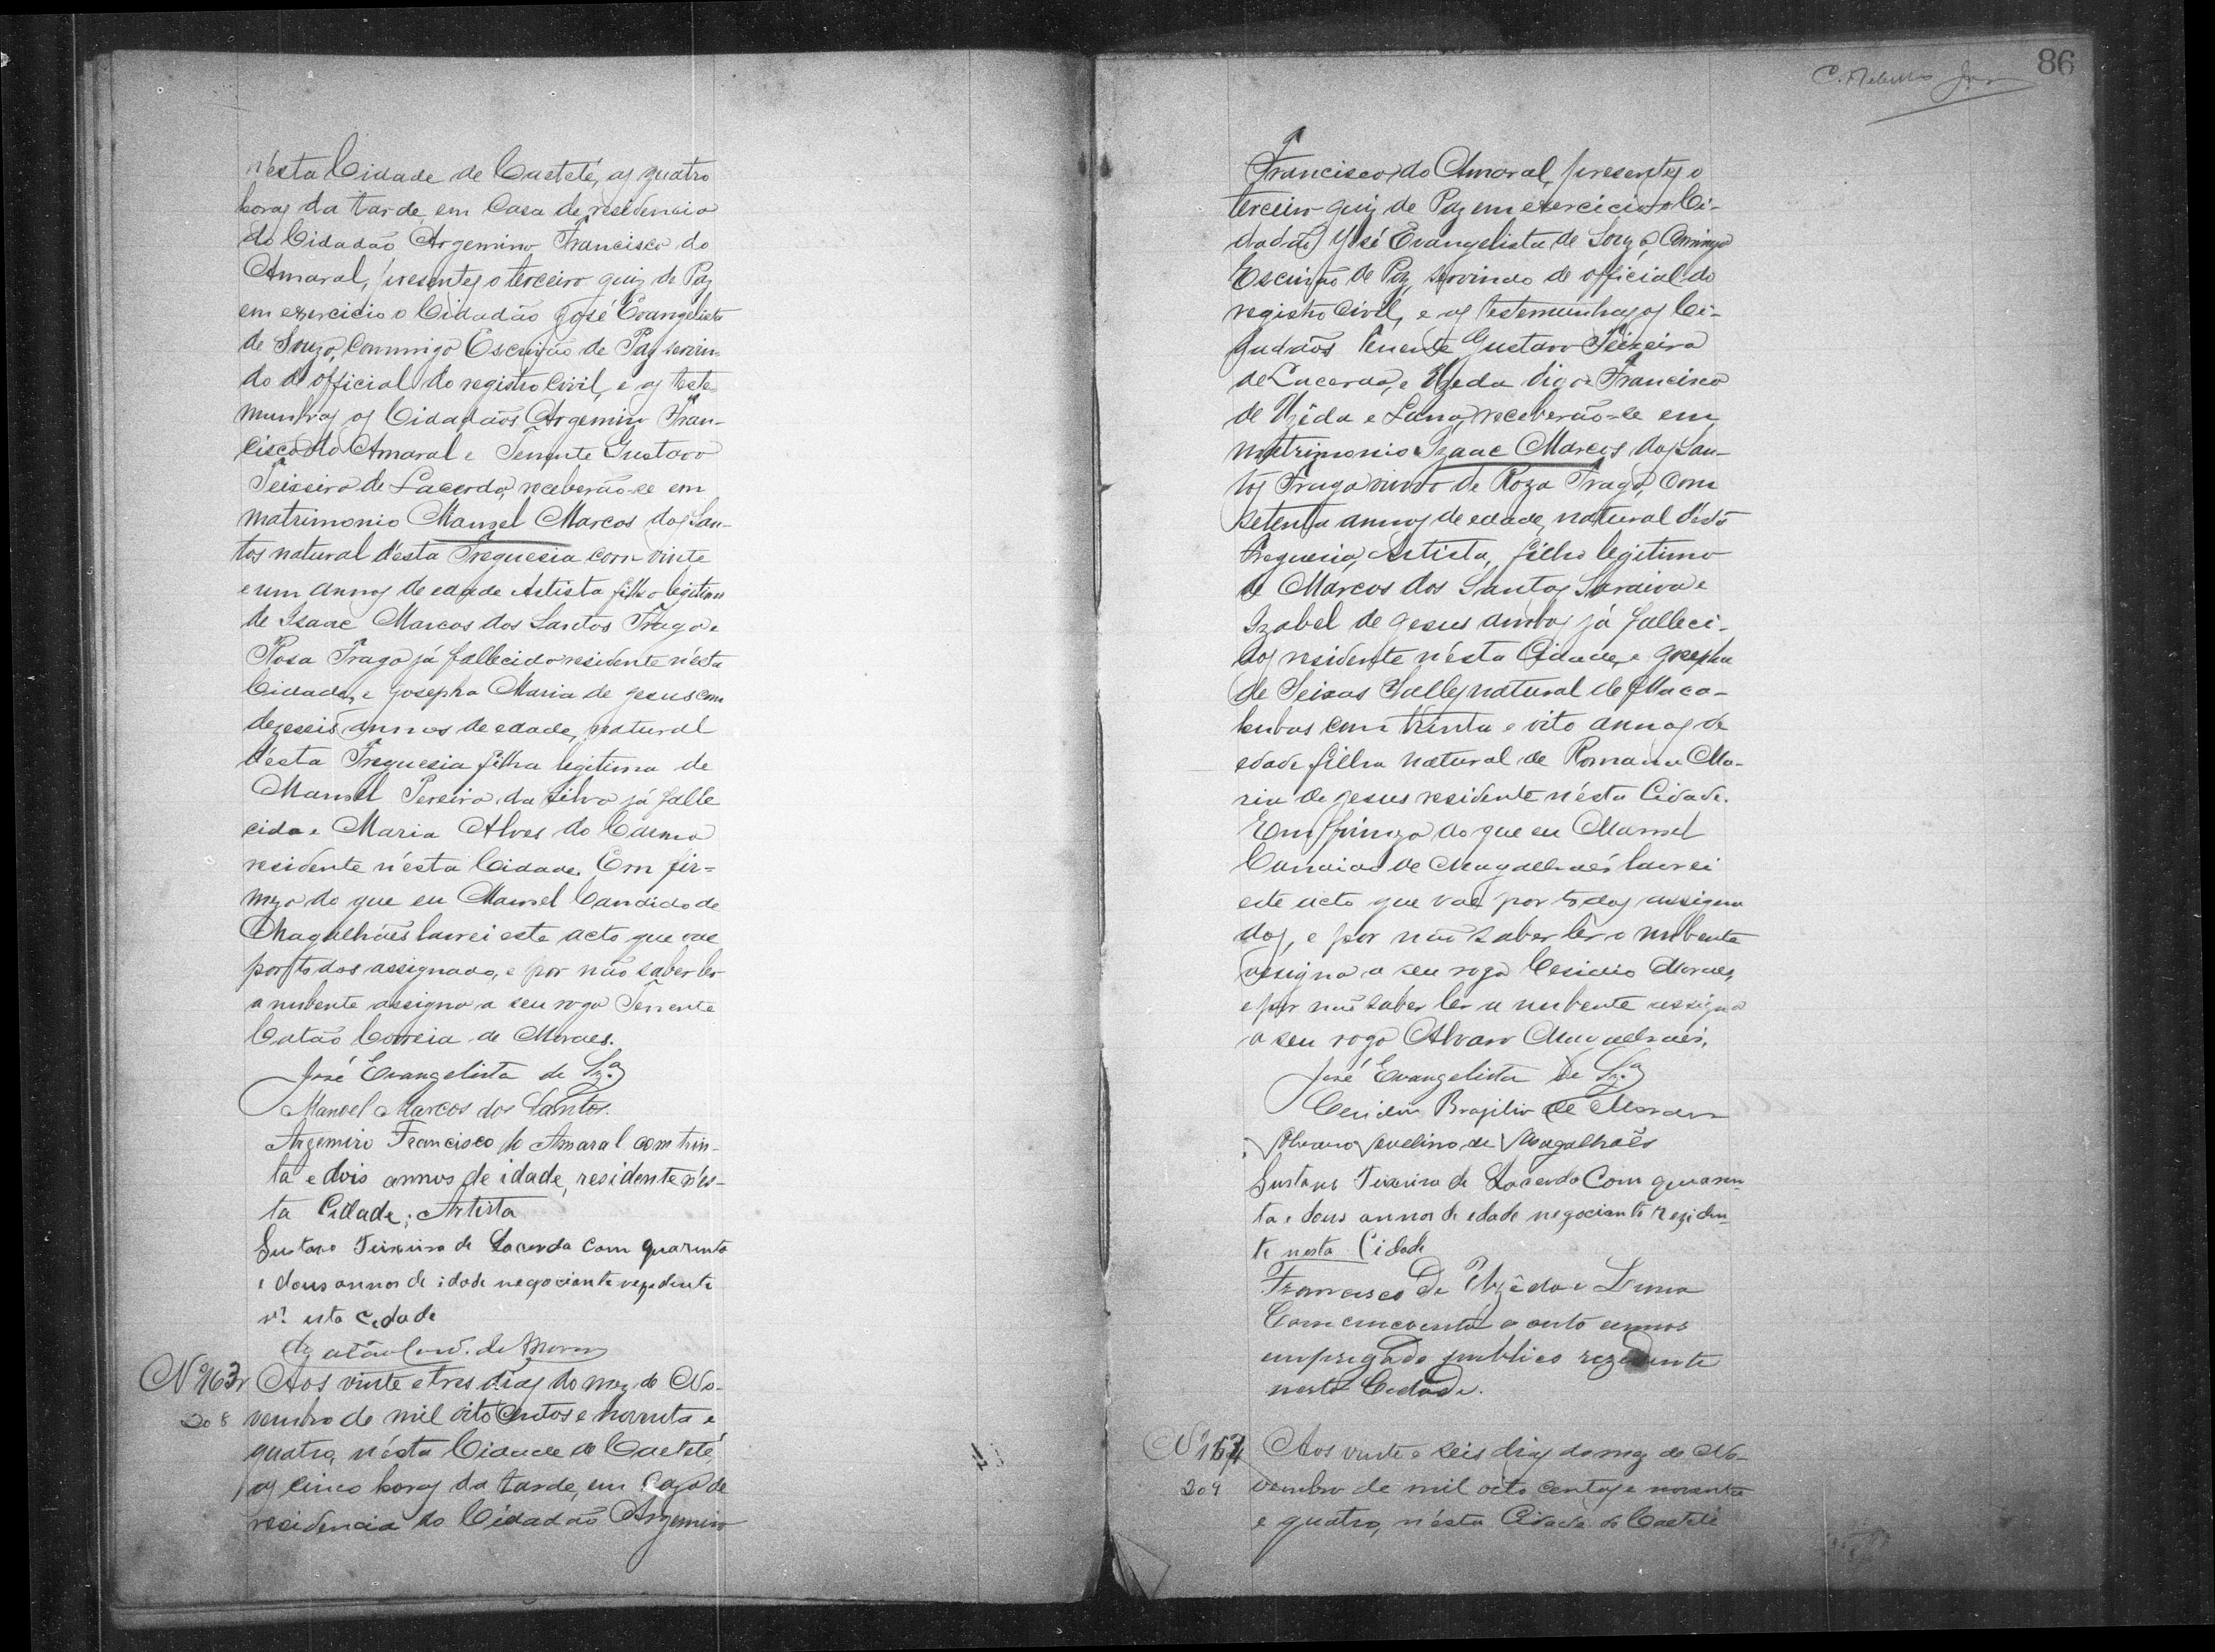 n'ésta Cidade de Caeteté, as quatro
horas da tarde em Casa de residencia
do Cidadão Argemiro Francisco do
Amaral, presentes o terceiro juiz de Paz
em exercicio o Cidadão José Evangelista
de Souza, commigo Escrivão de Paz servin-
do de official do registro Civil, e as teste-
munhas os Cidadãos Argemiro Fran-
cisco do Amaral e Tenente Gustavo
Teixeira de Lacerda, receberão-se em
matrimonio Manoel Marcos dos San-
tos natural d'ésta Freguesia com vinte
e um annos de edade Artista filho legitimo
de Isaac Marcos dos Santos Fraga e
Rosa Fraga já fallecida residente n'ésta
Cidade, e Josepha Maria de Jesus com
dezesseis annos de edade, natural
d'ésta Freguesia filha legitima de
Manoel Pereira da Silva já falle
cido e Maria Alves do Carmo
residente n'ésta Cidade. Em fir=
meza do que eu Manoel Candido de
Magalhães lavrei este acto que vae
por todos assignado, e por não saber ler
a nubente assigna a seu rogo Tenente
Catão Correia de Moraes.
José Evangelista de Sz.ª
Manoel Marcos dos Santos.
Argemiro Francisco do Amaral com trin-
ta e dois annos de idade, residente n'és-
ta Cidade; Artista
Gustavo Teixeira de Lacerda com quarenta
e dous annos de idade negociante rezedente
n'esta Cidade
Catão Corr. de Moraes
Nº 163 Aos vinte e tres dias do mez de No-
208 vembro de mil oito centos e noventa e
quatro, n'ésta Cidade de Caeteté,
as cinco horas da tarde, em Caza de
residencia do Cidadão Argemiro
86
Francisco do Amaral, presentes o
terceiro juiz de Paz em exercicio o Ci-
dadão José Evangelista de Souza, Commigo
Escrivão de Paz, servindo de official do
registro Civil, e as testemunhas os Ci-
dadãos Tenente Gustavo Teixeira
de Lacerda, e Uzeda digo Francisco
de Uzêda e Luna, receberão-se em
matrimonio Izaac Marcos dos San-
tos Fraga viuvo de Roza Fraga, Com
setenta annos de edade, natural d'esta
freguesia, Artista, filho legitimo
de Marcos dos Santos Saraiva e
Izabel de Jesus ambos já falleci-
dos residente n'ésta Cidade, e Josepha
de Seixas Salles natural de Maca-
hubas com trinta e oito annos de
edade filha natural de Romana Ma-
ria de Jesus residente n'ésta Cidade.
Em firmeza do que eu Manoel
Candido de Magalhães lavrei
este acto que vae por todos assigna
dos, e por não saber ler o nubente
assigna a seu rogo Cesidio Moraes,
e por não saber ler a nubente assigna
a seu rogo Alvaro Magalhães.
José Evangelista de Sz.ª
Cesidio Brazilio de Moraes
Alvaro Avelino de Magalhães
Gustavo Teixeira de Lacerda Com quaren-
ta e dous annos de edade negociante reziden-
te nesta Cidade
Francisco de Uzêda e Luna
Com cincoenta e oito annos
empregado publico rezidente
nesta Cidade.
Nº 164 Aos vinte e seis dias do mez de No-
209 vembro de mil oito centos e noventa
e quatro, n'ésta Cidade de Caeteté